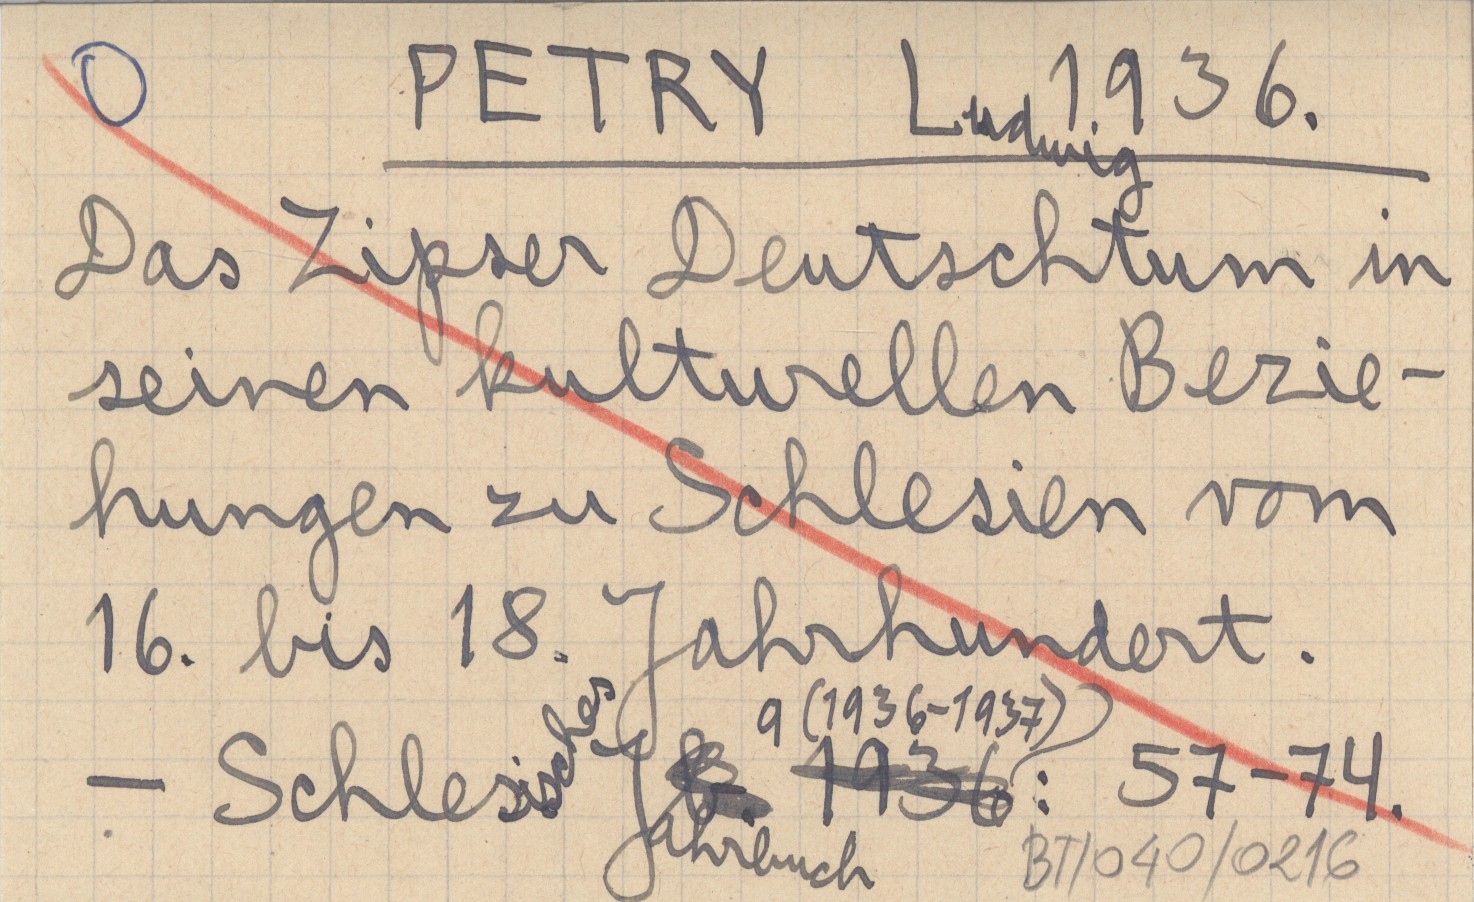 O PETRY Ludwig 1936.
Das Zipser Deutschtum in
seinen kulturellen Bezie-
hungen zu Schlesien vom
16. bis 18. Jahrhundert.
9 (1936-1937)
- Schlesisches Jahrbuch 1936: 57-74.
BT/040/0216